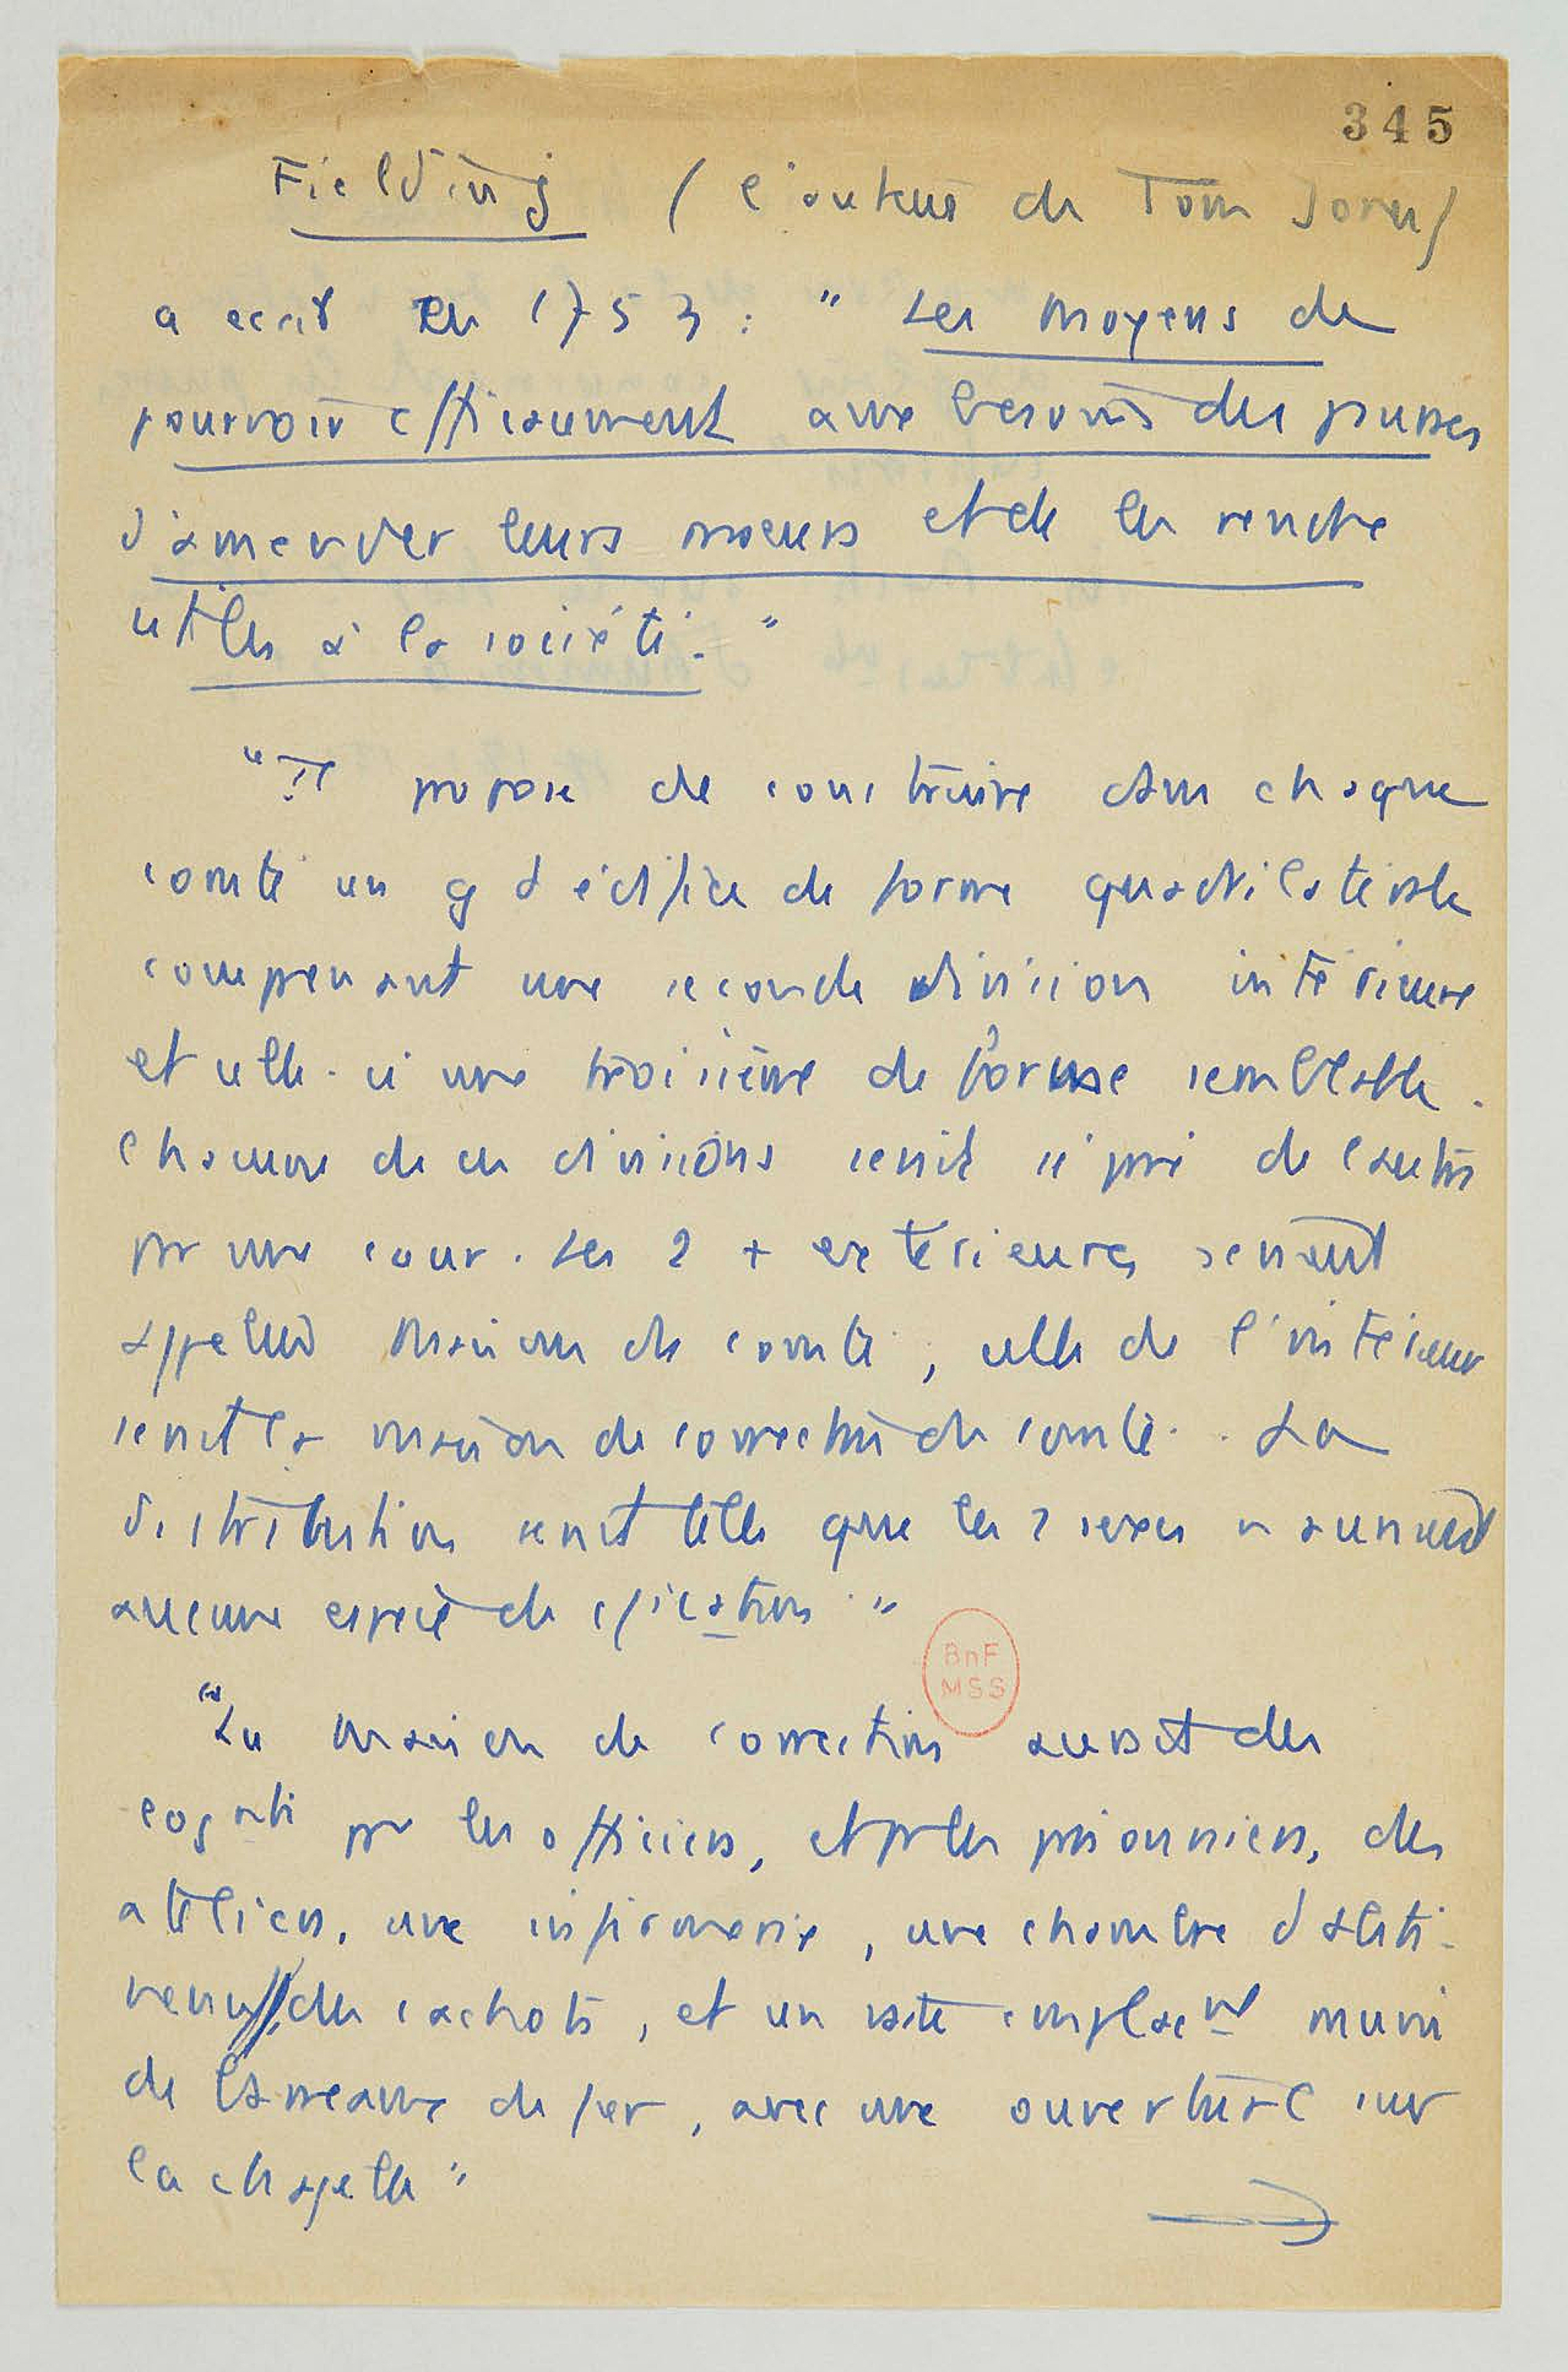 345
Fielding (l'auteur de Tom Jones)
a ecrit en 1753 : " Les moyens de
pourvoir efficacement aux besoins des pauvres
d'amender leurs moeurs et de les rendre
utiles à la société. "
" Il propose de construire dans chaque
comté un gd édifice de forme quadrilatérale
comprenant une seconde division intérieure
et celle-ci une troisième de forme semblable.
Chacune de ces divisions serait séparé de l'autre
par une cour. Les 2 + extérieures seraient
appelées maison de comté, celle de l'intérieur
serait la maison de correction du comté. La
distribution serait telle que les 2 sexes n'auraient
aucune espèce de
"La maison de correction aurait des
pr les officiers, et pr les prisonniers, des
ateliers, une infirmerie, une chambre d'absti-
nence, des cachots, et un vaste emplacmt muni
de barreaux de fer, avec une ouverture sur
la chapelle"
→
BnF
MSS